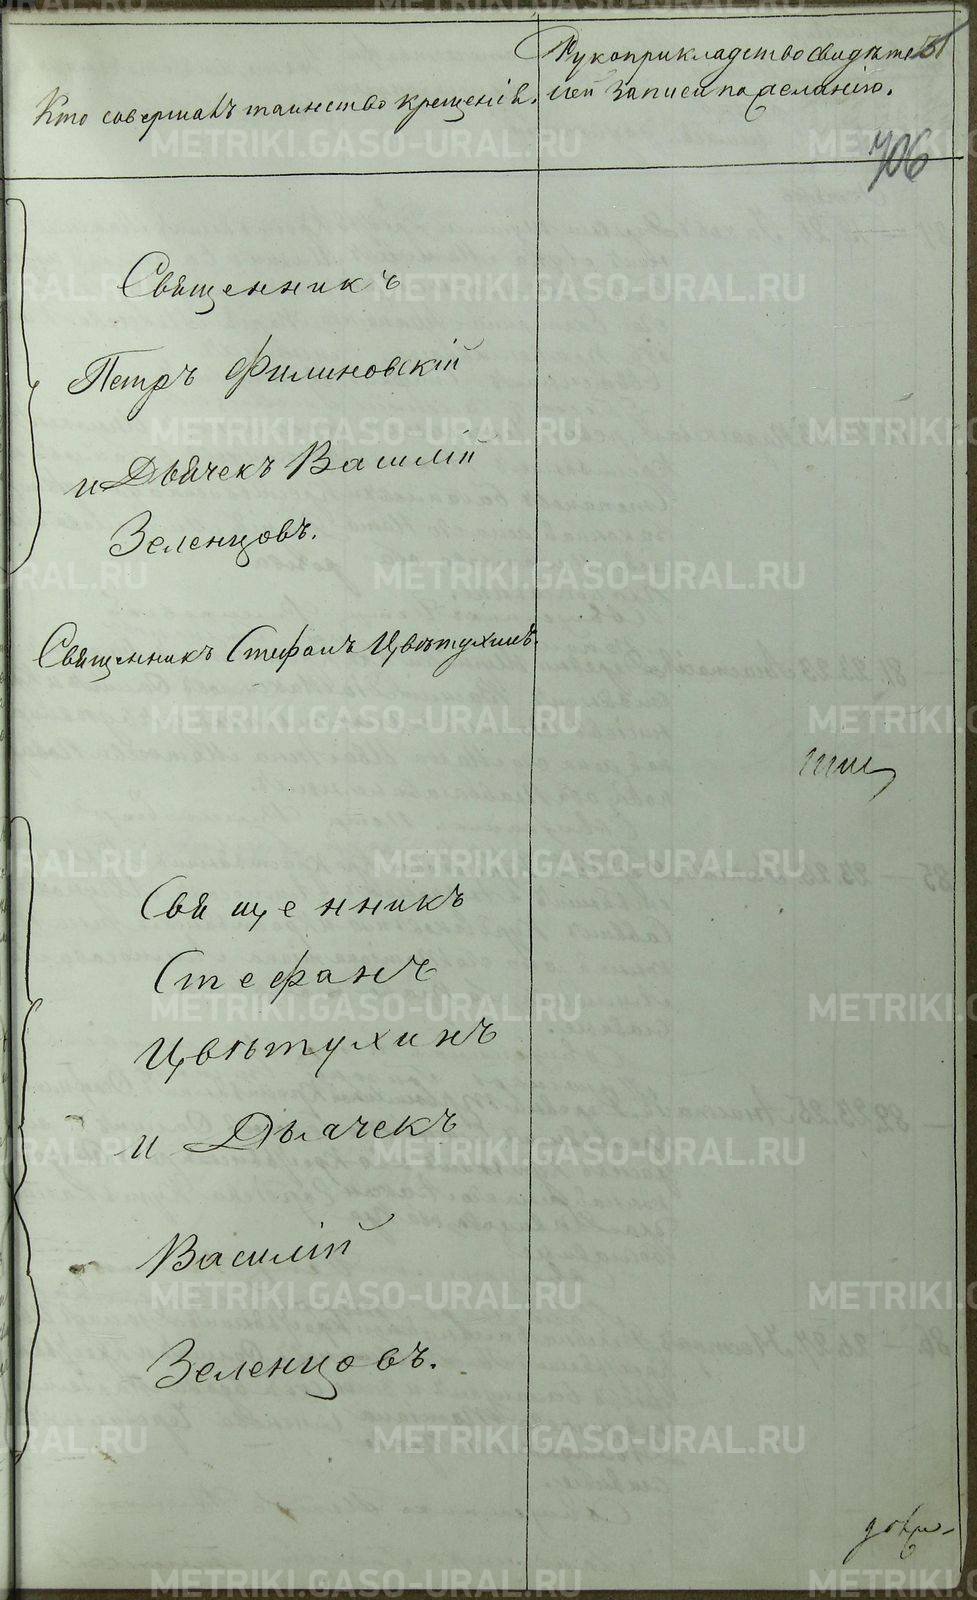 Кто совершалъ таинство крещенія.
Рукоприкладство свидѣте
лей записи по желанію.
706
Священникъ
Петръ Филиновскій
и Дьячекъ Василій
Зеленцовъ.
Священникъ Стефанъ Цвѣтухинъ.
Священникъ
Стефанъ
Цвѣтухинъ
и Дьячекъ
Василій
Зеленцовъ.